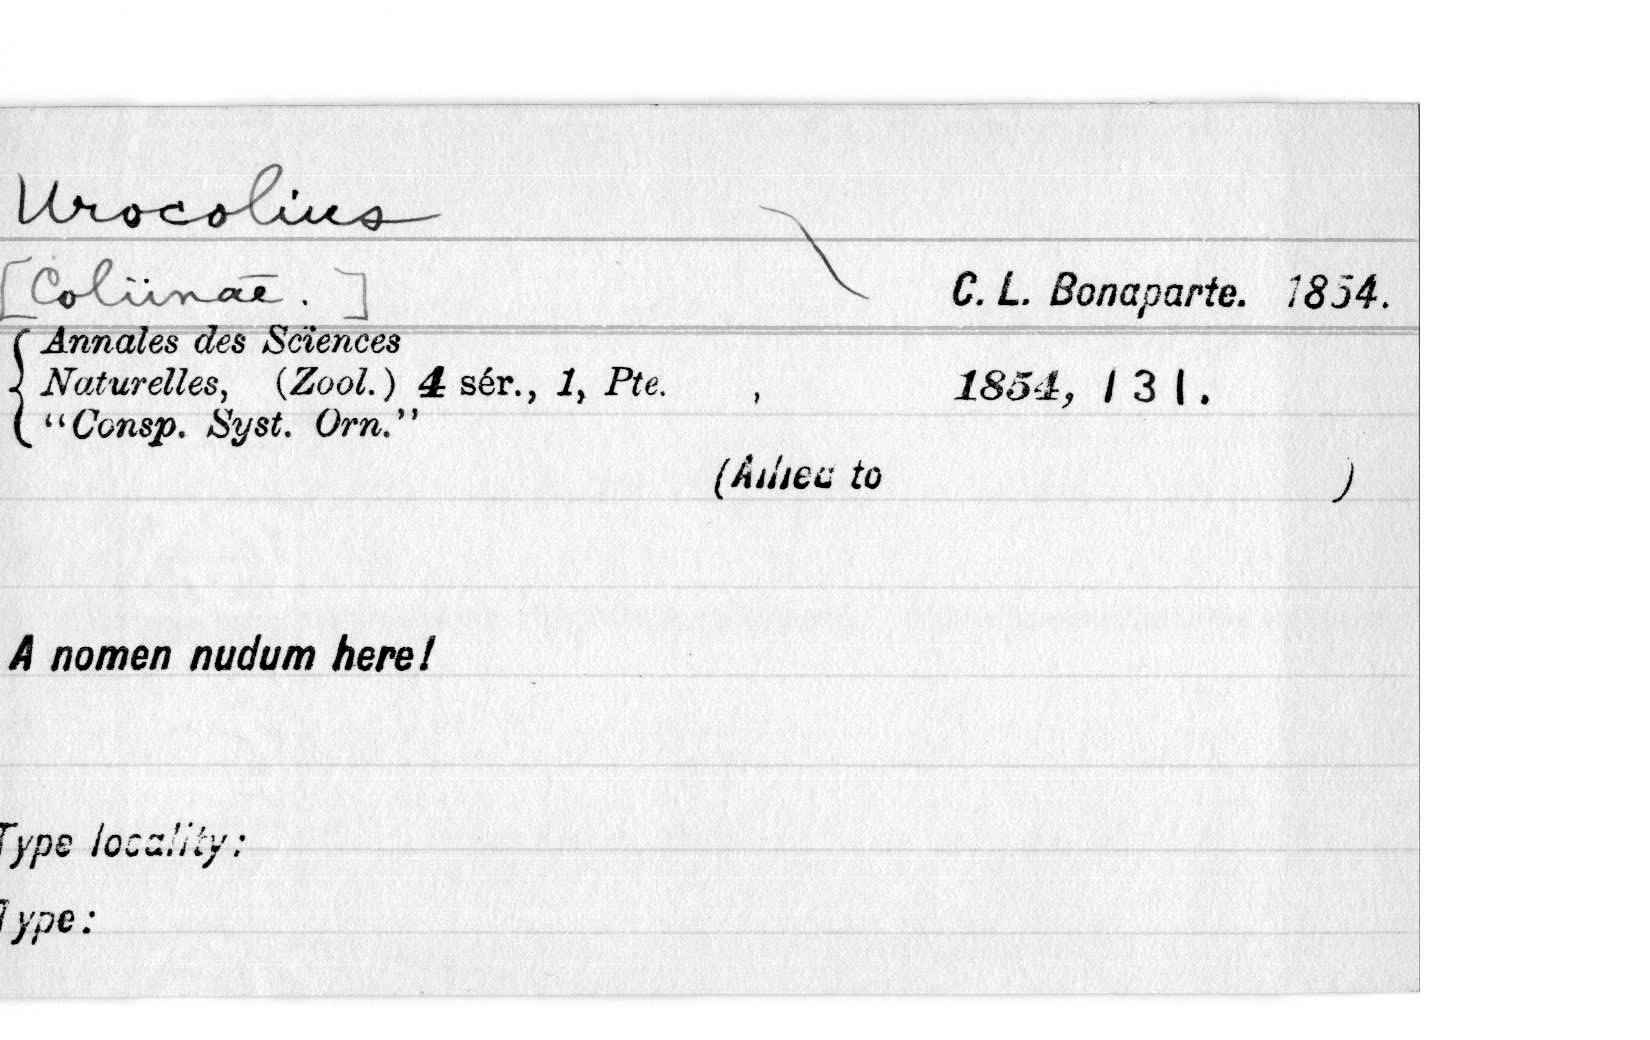 Urocolius
[Coliinae.] C. L. Bonaparte. 1854.
Annales des Sciences
Naturelles, (Zool.) 4 sér., 1, Pte. , 1854, 131.
"Consp. Syst. Orn."
(Allied to )
A nomen nudum here!
Type locality:
Type: